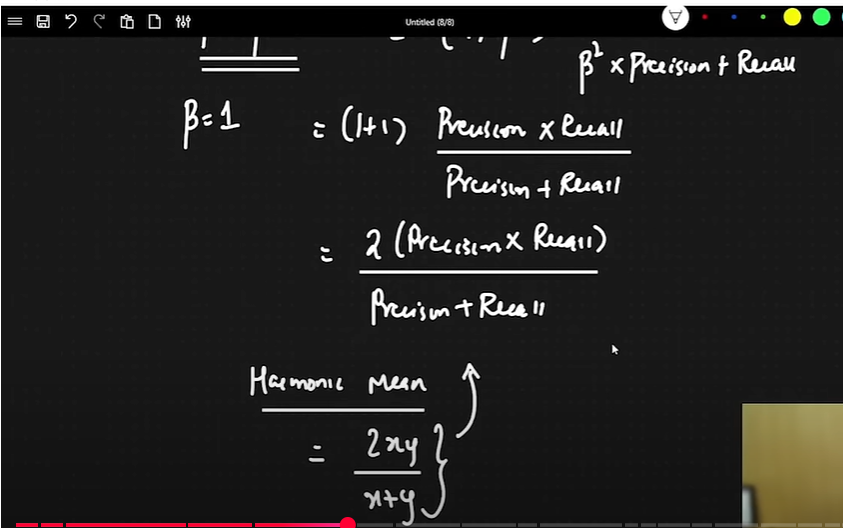 Untitled (8/8)
β² × Precision + Recall
β = 1 = (1+1) Precision × Recall
Precision + Recall
= 2 (Precision × Recall)
Precision + Recall
Harmonic Mean
= 2xy
x+y